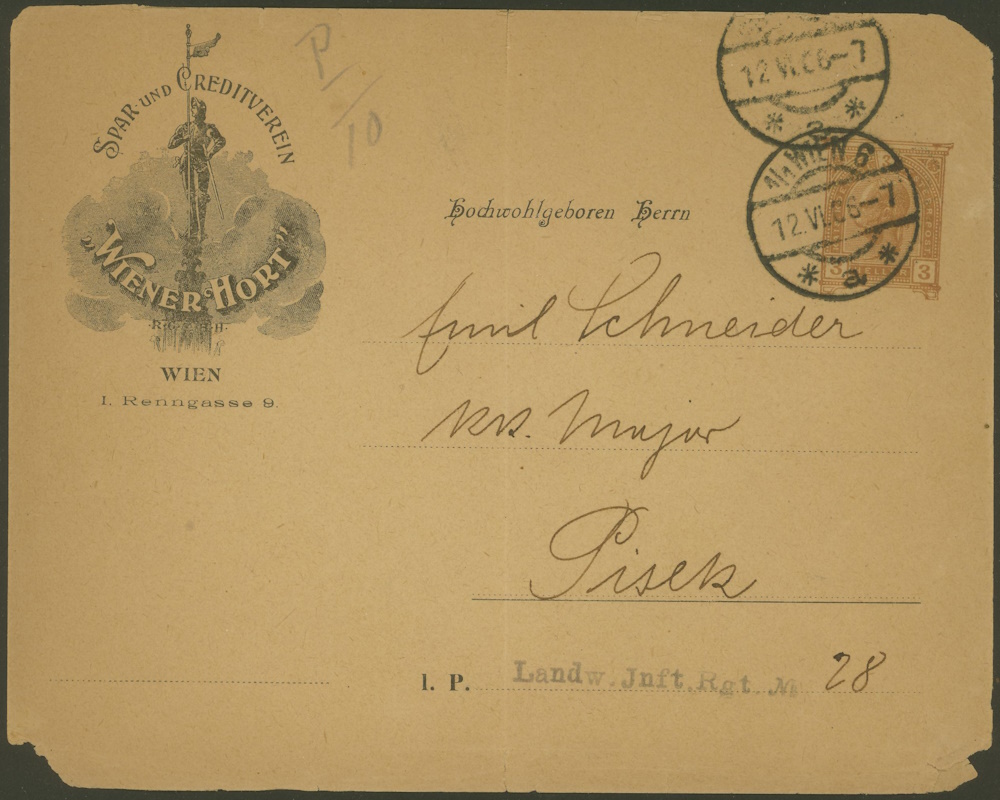 SPAR- UND CREDITVEREIN
„WIENER HORT“
R.G.M.B.H.
WIEN
I. Renngasse 9.
P/10
12.VI.06-7
* a *
WIEN 6
12.VI.06-7
* a *
3 3
Hochwohlgeboren Herrn
Emil Schneider
kk. Major
Pisek
l. P. Landw. Jnft. Rgt. № 28